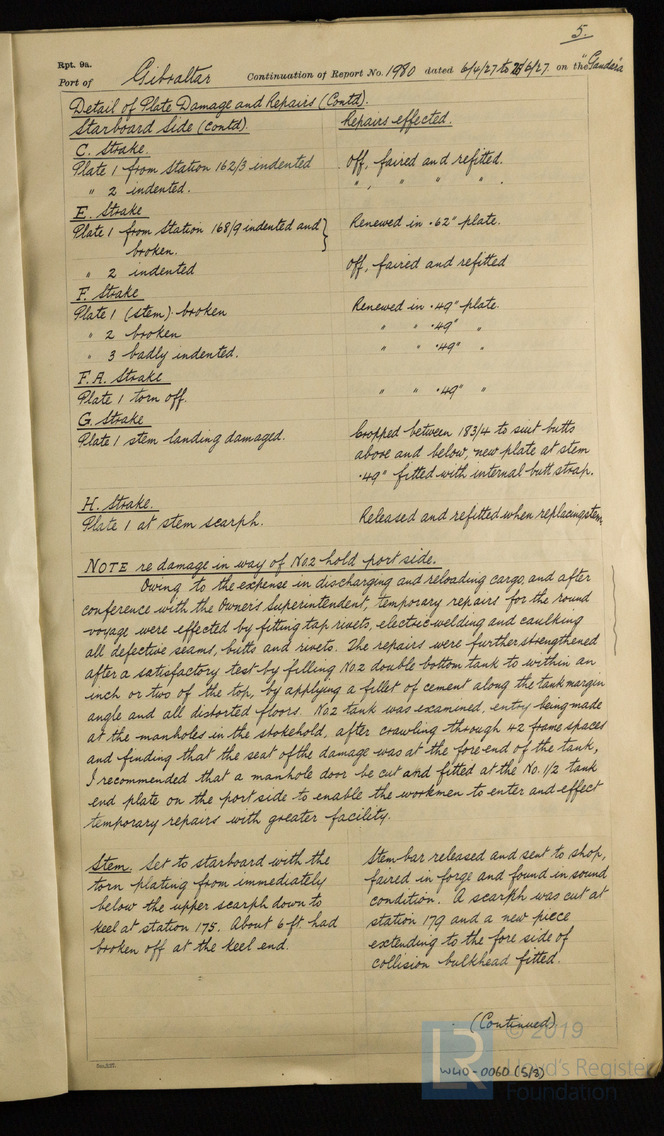 5.
Rpt. 9a.
Port of Gibraltar Continuation of Report No. 1980 dated 6/4/27 to 28/6/27 on the "Gandara
Detail of Plate Damage and Repairs (Contd).
Starboard Side (contd). Repairs effected.
C. Strake.
Plate 1 from Station 162/3 indented Off, faired and refitted.
" 2 indented. " , " " " .
E. Strake
Plate 1 from Station 168/9 indented and } Renewed in .62" plate.
broken.
" 2 indented Off, faired and refitted
F. Strake
Plate 1 (stem) broken Renewed in .49" plate.
" 2 broken " " .49" "
" 3 badly indented. " " .49" "
F.A. Strake
Plate 1 torn off. " " .49" "
G. Strake
Plate 1 stem landing damaged. Cropped between 183/4 to suit butts
above and below, new plate at stem
.49" fitted with internal butt strap.
H. Strake.
Plate 1 at stem scarph. Released and refitted when replacing stem.
NOTE re damage in way of No.2 hold port side.
Owing to the expense in discharging and reloading cargo, and after
conference with the Owner's Superintendent, temporary repairs for the round
voyage were effected by fitting tap rivets, electric welding and caulking
all defective seams, butts and rivets. The repairs were further strengthened
after a satisfactory test by filling No.2 double bottom tank to within an
inch or two of the top, by applying a fillet of cement along the tank margin
angle and all distorted floors. No.2 tank was examined, entry being made
at the manholes in the stokehold, after crawling through 42 frame spaces
and finding that the seat of the damage was at the fore end of the tank,
I recommended that a manhole door be cut and fitted at the No. 1/2 tank
end plate on the port side to enable the workmen to enter and effect
temporary repairs with greater facility.
Stem. Set to starboard with the
torn plating from immediately
below the upper scarph down to
keel at station 175. About 6 ft had
broken off at the keel end.
Stem bar released and sent to shop,
faired in forge and found in sound
condition. A scarph was cut at
station 179 and a new piece
extending to the fore side of
collision bulkhead fitted.
(Continued)
© 2019
LR Lloyd's Register
Foundation
W40-0060 (5/8)